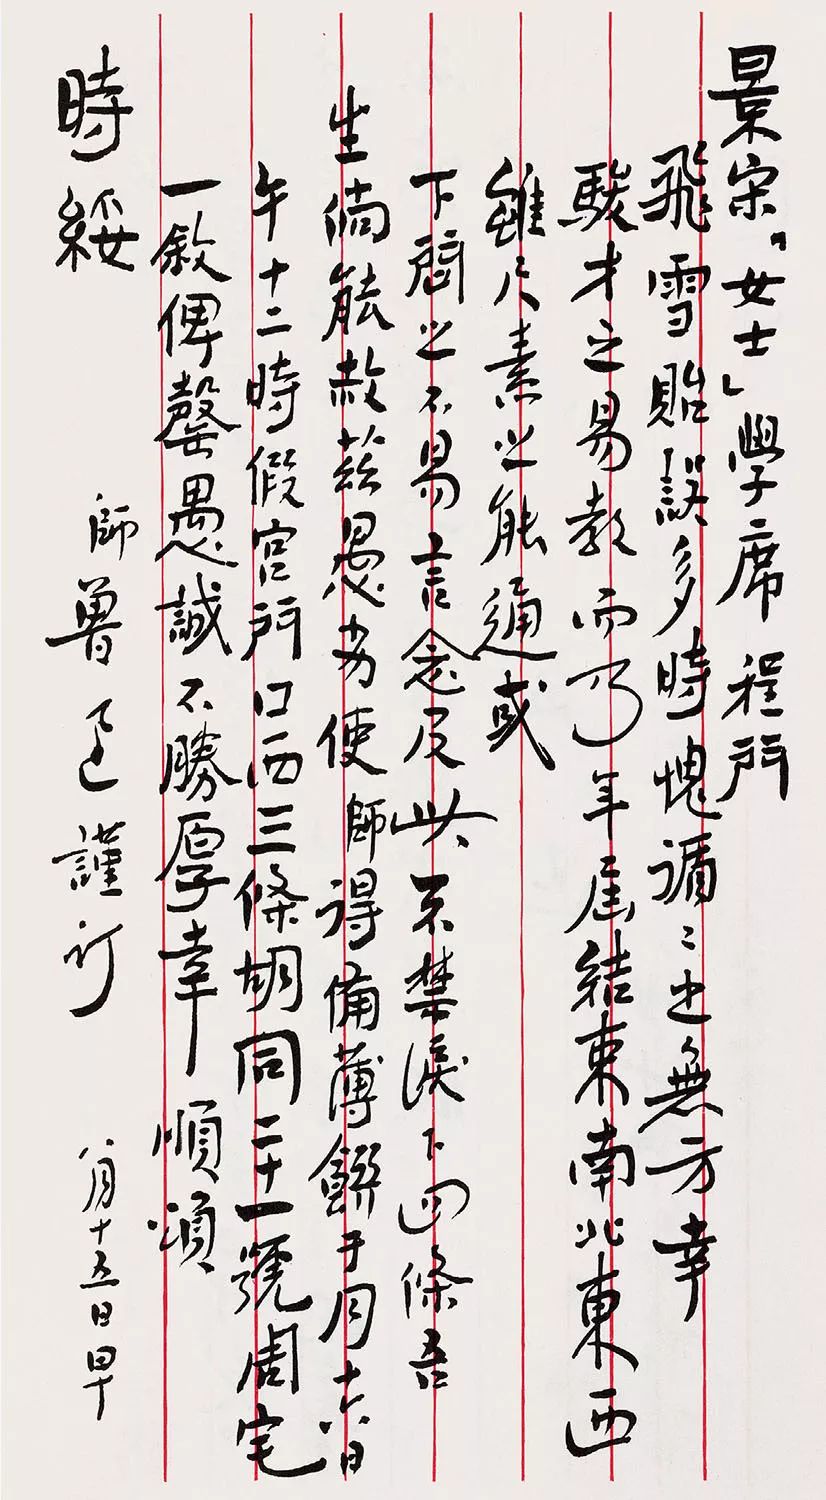 景宋「女士」學席程門
飛雪貽誤多時愧循循之無方幸
駿才之易教而乃年届結束南北東西
雖尺素之能通或
下問之不易言念及此不禁淚下四條吾
生倘能赦茲愚劣使師得備薄饌于月十六日
午十二時假宫門口西三條胡同二十一號周宅
一敘俾罄愚誠不勝厚幸順頌
時綏
師魯迅謹訂
八月十五日早